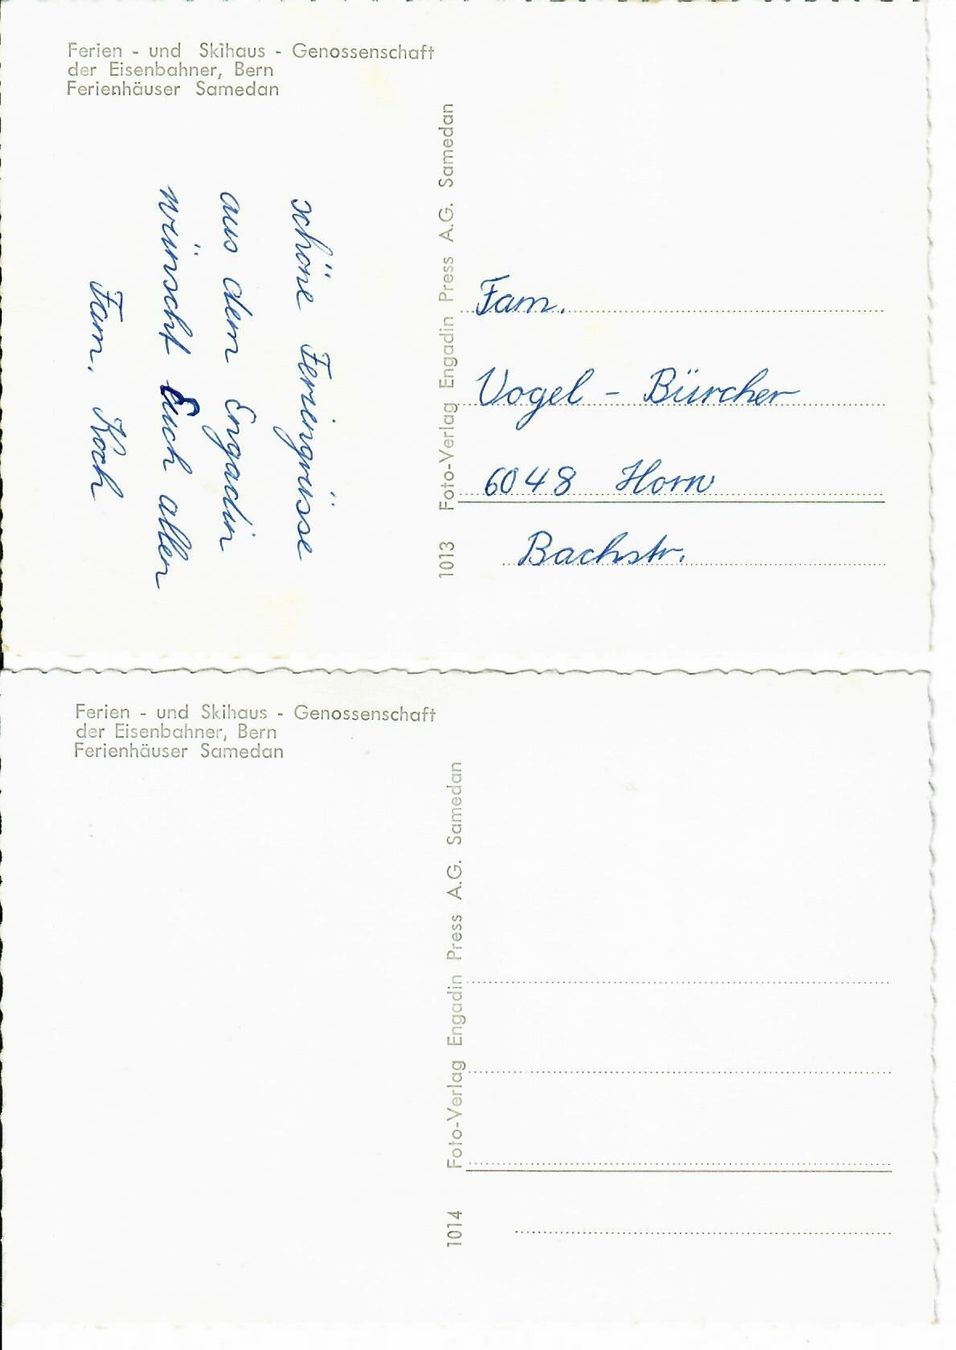 Ferien - und Skihaus - Genossenschaft
der Eisenbahner, Bern
Ferienhäuser Samedan
schöne Feriengrüsse
aus dem Engadin
wünscht Euch allen
Fam. Koch
1013 Foto-Verlag Engadin Press A.G. Samedan
Fam.
Vogel - Bürcher
6048 Horw
Bachstr.
Ferien - und Skihaus - Genossenschaft
der Eisenbahner, Bern
Ferienhäuser Samedan
1014 Foto-Verlag Engadin Press A.G. Samedan